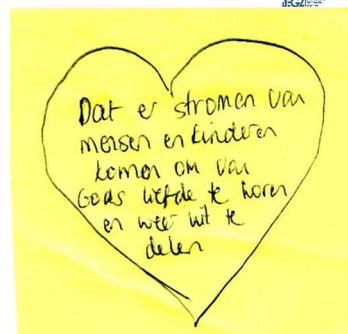 Dat er stromen van
mensen en kinderen
komen om van
Gods liefde te horen
en weer uit te
delen